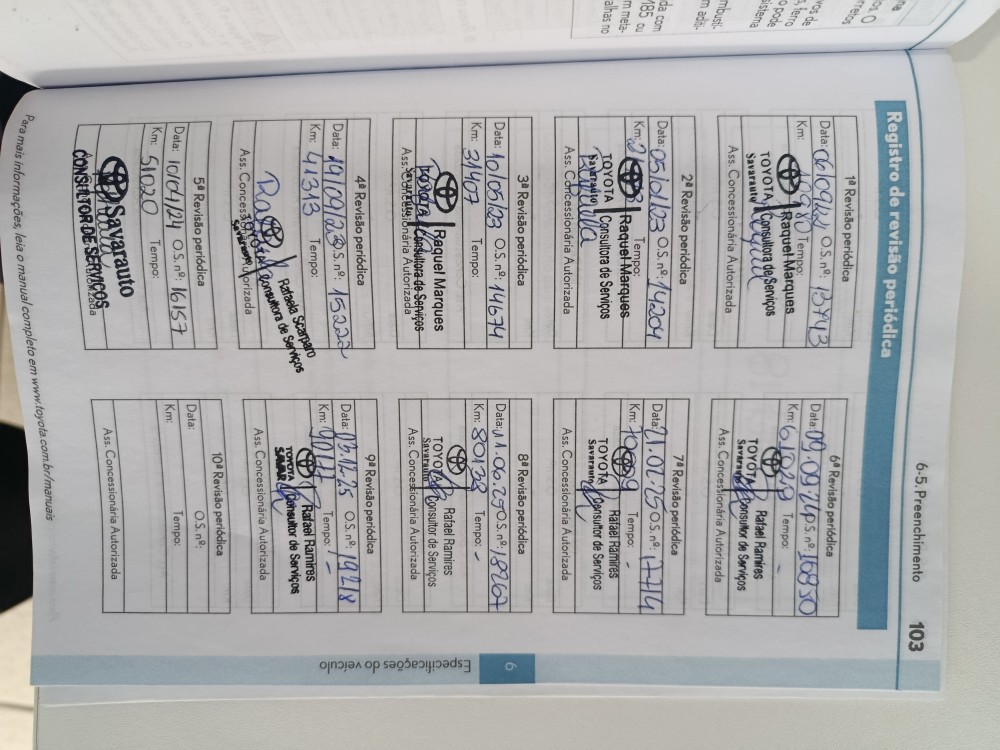 6-5. Preenchimento
103
Registro de revisão periódica
1ª Revisão periódica
Data: 06/09/22 O.S.nº: 13743
Km: 10980 Tempo:
TOYOTA Raquel Marques
Savarauto Consultora de Serviços
Ass. Concessionária Autorizada
2ª Revisão periódica
Data: 05/01/23 O.S.nº: 14204
Km: Tempo:
TOYOTA Raquel Marques
Savarauto Consultora de Serviços
Ass. Concessionária Autorizada
3ª Revisão periódica
Data: 10/05/23 O.S.nº: 14674
Km: 31407 Tempo:
TOYOTA Raquel Marques
Savarauto Consultora de Serviços
Ass. Concessionária Autorizada
4ª Revisão periódica
Data: 19/09/23 O.S.nº: 15222
Km: 41313 Tempo:
Rafaela Scarparo
Savarauto Consultora de Serviços
Ass. Concessionária Autorizada
5ª Revisão periódica
Data: 10/04/24 O.S.nº: 16157
Km: 51020 Tempo:
Savarauto
CONSULTOR DE SERVIÇOS
Ass. Concessionária Autorizada
6ª Revisão periódica
Data: 09.09.24 O.S.nº: 16830
Km: 61029 Tempo: -
TOYOTA Rafael Ramires
Savarauto Consultor de Serviços
Ass. Concessionária Autorizada
7ª Revisão periódica
Data: 21.02.25 O.S.nº: 17714
Km: Tempo: -
TOYOTA Rafael Ramires
Savarauto Consultor de Serviços
Ass. Concessionária Autorizada
8ª Revisão periódica
Data: 11.06.25 O.S.nº: 18267
Km: 80133 Tempo: -
TOYOTA Rafael Ramires
Savarauto Consultor de Serviços
Ass. Concessionária Autorizada
9ª Revisão periódica
Data: 03.12.25 O.S.nº: 19218
Km: Tempo: -
TOYOTA Rafael Ramires
Consultor de Serviços
Ass. Concessionária Autorizada
10ª Revisão periódica
Data: O.S.nº:
Km: Tempo:
Ass. Concessionária Autorizada
6
Especificações do veículo
Para mais informações, leia o manual completo em www.toyota.com.br/manuais